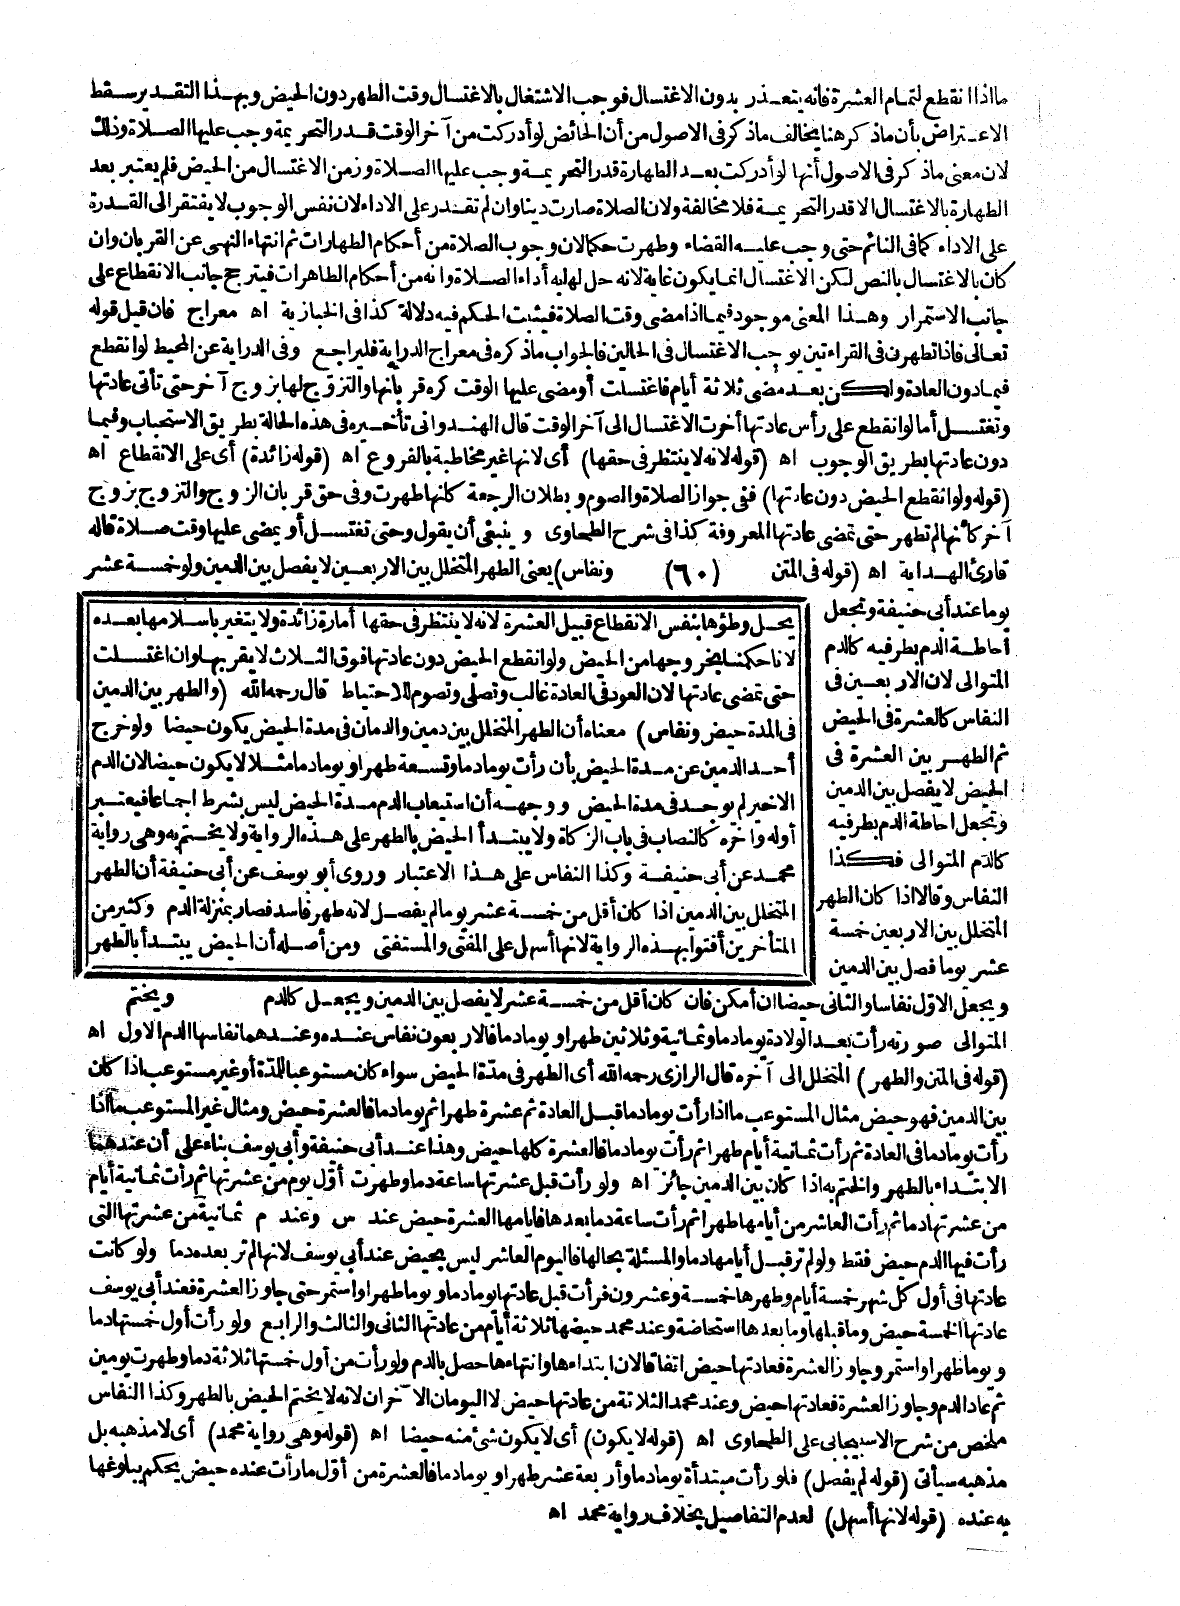 مااذا انقطع لتمام العشرة فانه يتعذر بدون الاغتسال فوجب الاشتغال بالاغتسال وقت الطهر دون الحيض وبهذا التقدير سقط
الاعتراض بأن ماذكر هنا يخالف ماذكر فى الاصول من أن الحائض لو أدركت من آخر الوقت قدر التحريمة وجب عليها الصلاة وذلك
لان معنى ماذكر فى الاصول أنها لو أدركت بعد الطهارة قدر التحريمة وجب عليها الصلاة وزمن الاغتسال من الحيض فلم يعتبر بعد
الطهارة بالاغتسال الا قدر التحريمة فلا مخالفة ولان الصلاة صارت دينا وان لم تقدر على الاداء لان نفس الوجوب لا يفتقر الى القدرة
على الاداء كما فى النائم حتى وجب عليه القضاء وطهرت حكما لان وجوب الصلاة من أحكام الطهارات ثم انتهاء النهى عن القربان وان
كان بالاغتسال بالنص لكن الاغتسال انما يكون غاية لانه حل لها به أداء الصلاة وانه من أحكام الطاهرات فيترجح جانب الانقطاع على
جانب الاستمرار وهذا المعنى موجود فيما اذا مضى وقت الصلاة فيثبت الحكم فيه دلالة كذا فى الخبازية اه معراج فان قيل قوله
تعالى فاذا تطهرن فى القراءتين يوجب الاغتسال فى الحالين فالجواب ماذكره فى معراج الدراية فليراجع وفى الدراية عن المحيط لو انقطع
فيما دون العادة ولكن بعد مضى ثلاثة أيام فاغتسلت أو مضى عليها الوقت كره قربانها والتزوج لها بزوج آخر حتى تأتى عادتها
وتغتسل أما لو انقطع على رأس عادتها أخرت الاغتسال الى آخر الوقت قال الهندوانى تأخيره فى هذه الحالة بطريق الاستحباب وفيما
دون عادتها بطريق الوجوب اه (قوله لانه لا ينتظر فى حقها) أى لانها غير مخاطبة بالفروع اه (قوله زائدة) أى على الانقطاع اه
(قوله ولو انقطع الحيض دون عادتها) ففى جواز الصلاة والصوم وبطلان الرجعة كأنها طهرت وفى حق قربان الزوج والتزوج بزوج
آخر كأنها لم تطهر حتى تمضى عادتها المعروفة كذا فى شرح الطحاوى وينبغى أن يقول وحتى تغتسل أو يمضى عليها وقت صلاة قاله
قارئ الهداية اه (قوله فى المتن (٦٠) ونفاس) يعنى الطهر المتخلل بين الاربعين لا يفصل بين الدمين ولو خمسة عشر
يوما عند أبى حنيفة وتجعل
احاطة الدم بطرفيه كالدم
المتوالى لان الاربعين فى
النفاس كالعشرة فى الحيض
ثم الطهر بين العشرة فى
الحيض لا يفصل بين الدمين
وتجعل احاطة الدم بطرفيه
كالدم المتوالى فكذا
النفاس وقالا اذا كان الطهر
المتخلل بين الاربعين خمسة
عشر يوما فصل بين الدمين
يحل وطؤها بنفس الانقطاع قبيل العشرة لانه لا ينتظر فى حقها أمارة زائدة ولا يتغير باسلامها بعده
لانا حكمنا بخروجها من الحيض ولو انقطع الحيض دون عادتها فوق الثلاث لا يقربها وان اغتسلت
حتى تمضى عادتها لان العود فى العادة غالب وتصلى وتصوم للاحتياط قال رحمه الله (والطهر بين الدمين
فى المدة حيض ونفاس) معناه أن الطهر المتخلل بين دمين والدمان فى مدة الحيض يكون حيضا ولو خرج
أحد الدمين عن مدة الحيض بأن رأت يوما دما وتسعة طهرا ويوما دما مثلا لا يكون حيضا لان الدم
الاخير لم يوجد فى مدة الحيض ووجهه أن استيعاب الدم مدة الحيض ليس بشرط اجماعا فيعتبر
أوله وآخره كالنصاب فى باب الزكاة ولا يبتدأ الحيض بالطهر على هذه الرواية ولا يختم به وهى رواية
محمد عن أبى حنيفة وكذا النفاس على هذا الاعتبار وروى أبو يوسف عن أبى حنيفة أن الطهر
المتخلل بين الدمين اذا كان أقل من خمسة عشر يوما لم يفصل لانه طهر فاسد فصار بمنزلة الدم وكثير من
المتأخرين أفتوا بهذه الرواية لانها أسهل على المفتى والمستفتى ومن أصله أن الحيض يبتدأ بالطهر
ويجعل الاول نفاسا والثانى حيضا ان أمكن فان كان أقل من خمسة عشر لا يفصل بين الدمين ويجعل كالدم ويختم
المتوالى صورته رأت بعد الولادة يوما دما وثمانية وثلاثين طهرا ويوما دما فالاربعون نفاس عنده وعندهما نفاسها الدم الاول اه
(قوله فى المتن والطهر) المتخلل الى آخره قال الرازى رحمه الله أى الطهر فى مدة الحيض سواء كان مستوعبا للمدة أو غير مستوعب اذا كان
بين الدمين فهو حيض مثال المستوعب ما اذا رأت يوما دما قبل العادة ثم عشرة طهرا ثم يوما دما فالعشرة حيض ومثال غير المستوعب ما اذا
رأت يوما دما فى العادة ثم رأت ثمانية أيام طهرا ثم رأت يوما دما فالعشرة كلها حيض وهذا عند أبى حنيفة وأبى يوسف بناء على أن عندهما
الابتداء بالطهر والختم به اذا كان بين الدمين جائز اه ولو رأت قبل عشرتها ساعة دما وطهرت أول يوم من عشرتها ثم رأت ثمانية أيام
من عشرتها دما ثم رأت العاشر من أيامها طهرا ثم رأت ساعة دما بعدها فأيامها العشرة حيض عند س وعند م ثمانية من عشرتها التى
رأت فيها الدم حيض فقط ولو لم تر قبل أيامها دما والمسئلة بحالها فاليوم العاشر ليس بحيض عند أبى يوسف لانها لم تر بعده دما ولو كانت
عادتها فى أول كل شهر خمسة أيام وطهرها خمسة وعشرون فرأت قبل عادتها يوما دما ويوما طهرا واستمر حتى جاوز العشرة فعند أبى يوسف
عادتها الخمسة حيض وما قبلها وما بعدها استحاضة وعند محمد حيضها ثلاثة أيام من عادتها الثانى والثالث والرابع ولو رأت أول خمستها دما
ويوما طهرا واستمر وجاوز العشرة فعادتها حيض اتفاقا لان ابتداءها وانتهاءها حصل بالدم ولو رأت من أول خمستها ثلاثة دما وطهرت يومين
ثم عاد الدم وجاوز العشرة فعادتها حيض وعند محمد الثلاثة من عادتها حيض لا اليومان الآخران لانه لا يختم الحيض بالطهر وكذا النفاس
ملخص من شرح الاسبيجابى على الطحاوى اه (قوله لا يكون) أى لا يكون شئ منه حيضا اه (قوله وهى رواية محمد) أى لا مذهبه بل
مذهبه سيأتى (قوله لم يفصل) فلو رأت مبتدأة يوما دما وأربعة عشر طهرا ويوما دما فالعشرة من أول ما رأت عنده حيض يحكم ببلوغها
به عنده (قوله لانها أسهل) لعدم التفاصيل بخلاف رواية محمد اه